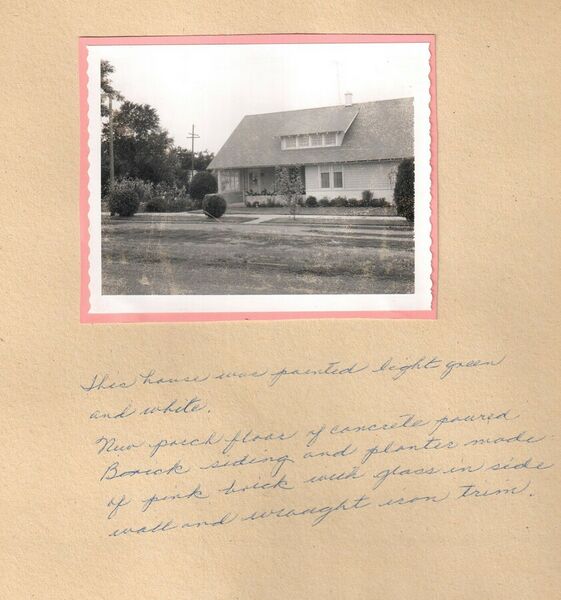 This house was painted light green
and white.
New porch floor of concrete poured
Borick siding and planter made
of pink brick with glass in side
wall and wrought iron trim.